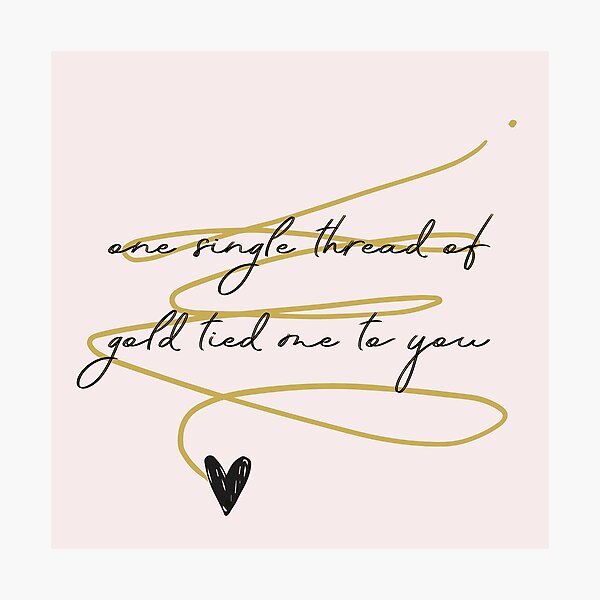 one single thread of
gold tied me to you